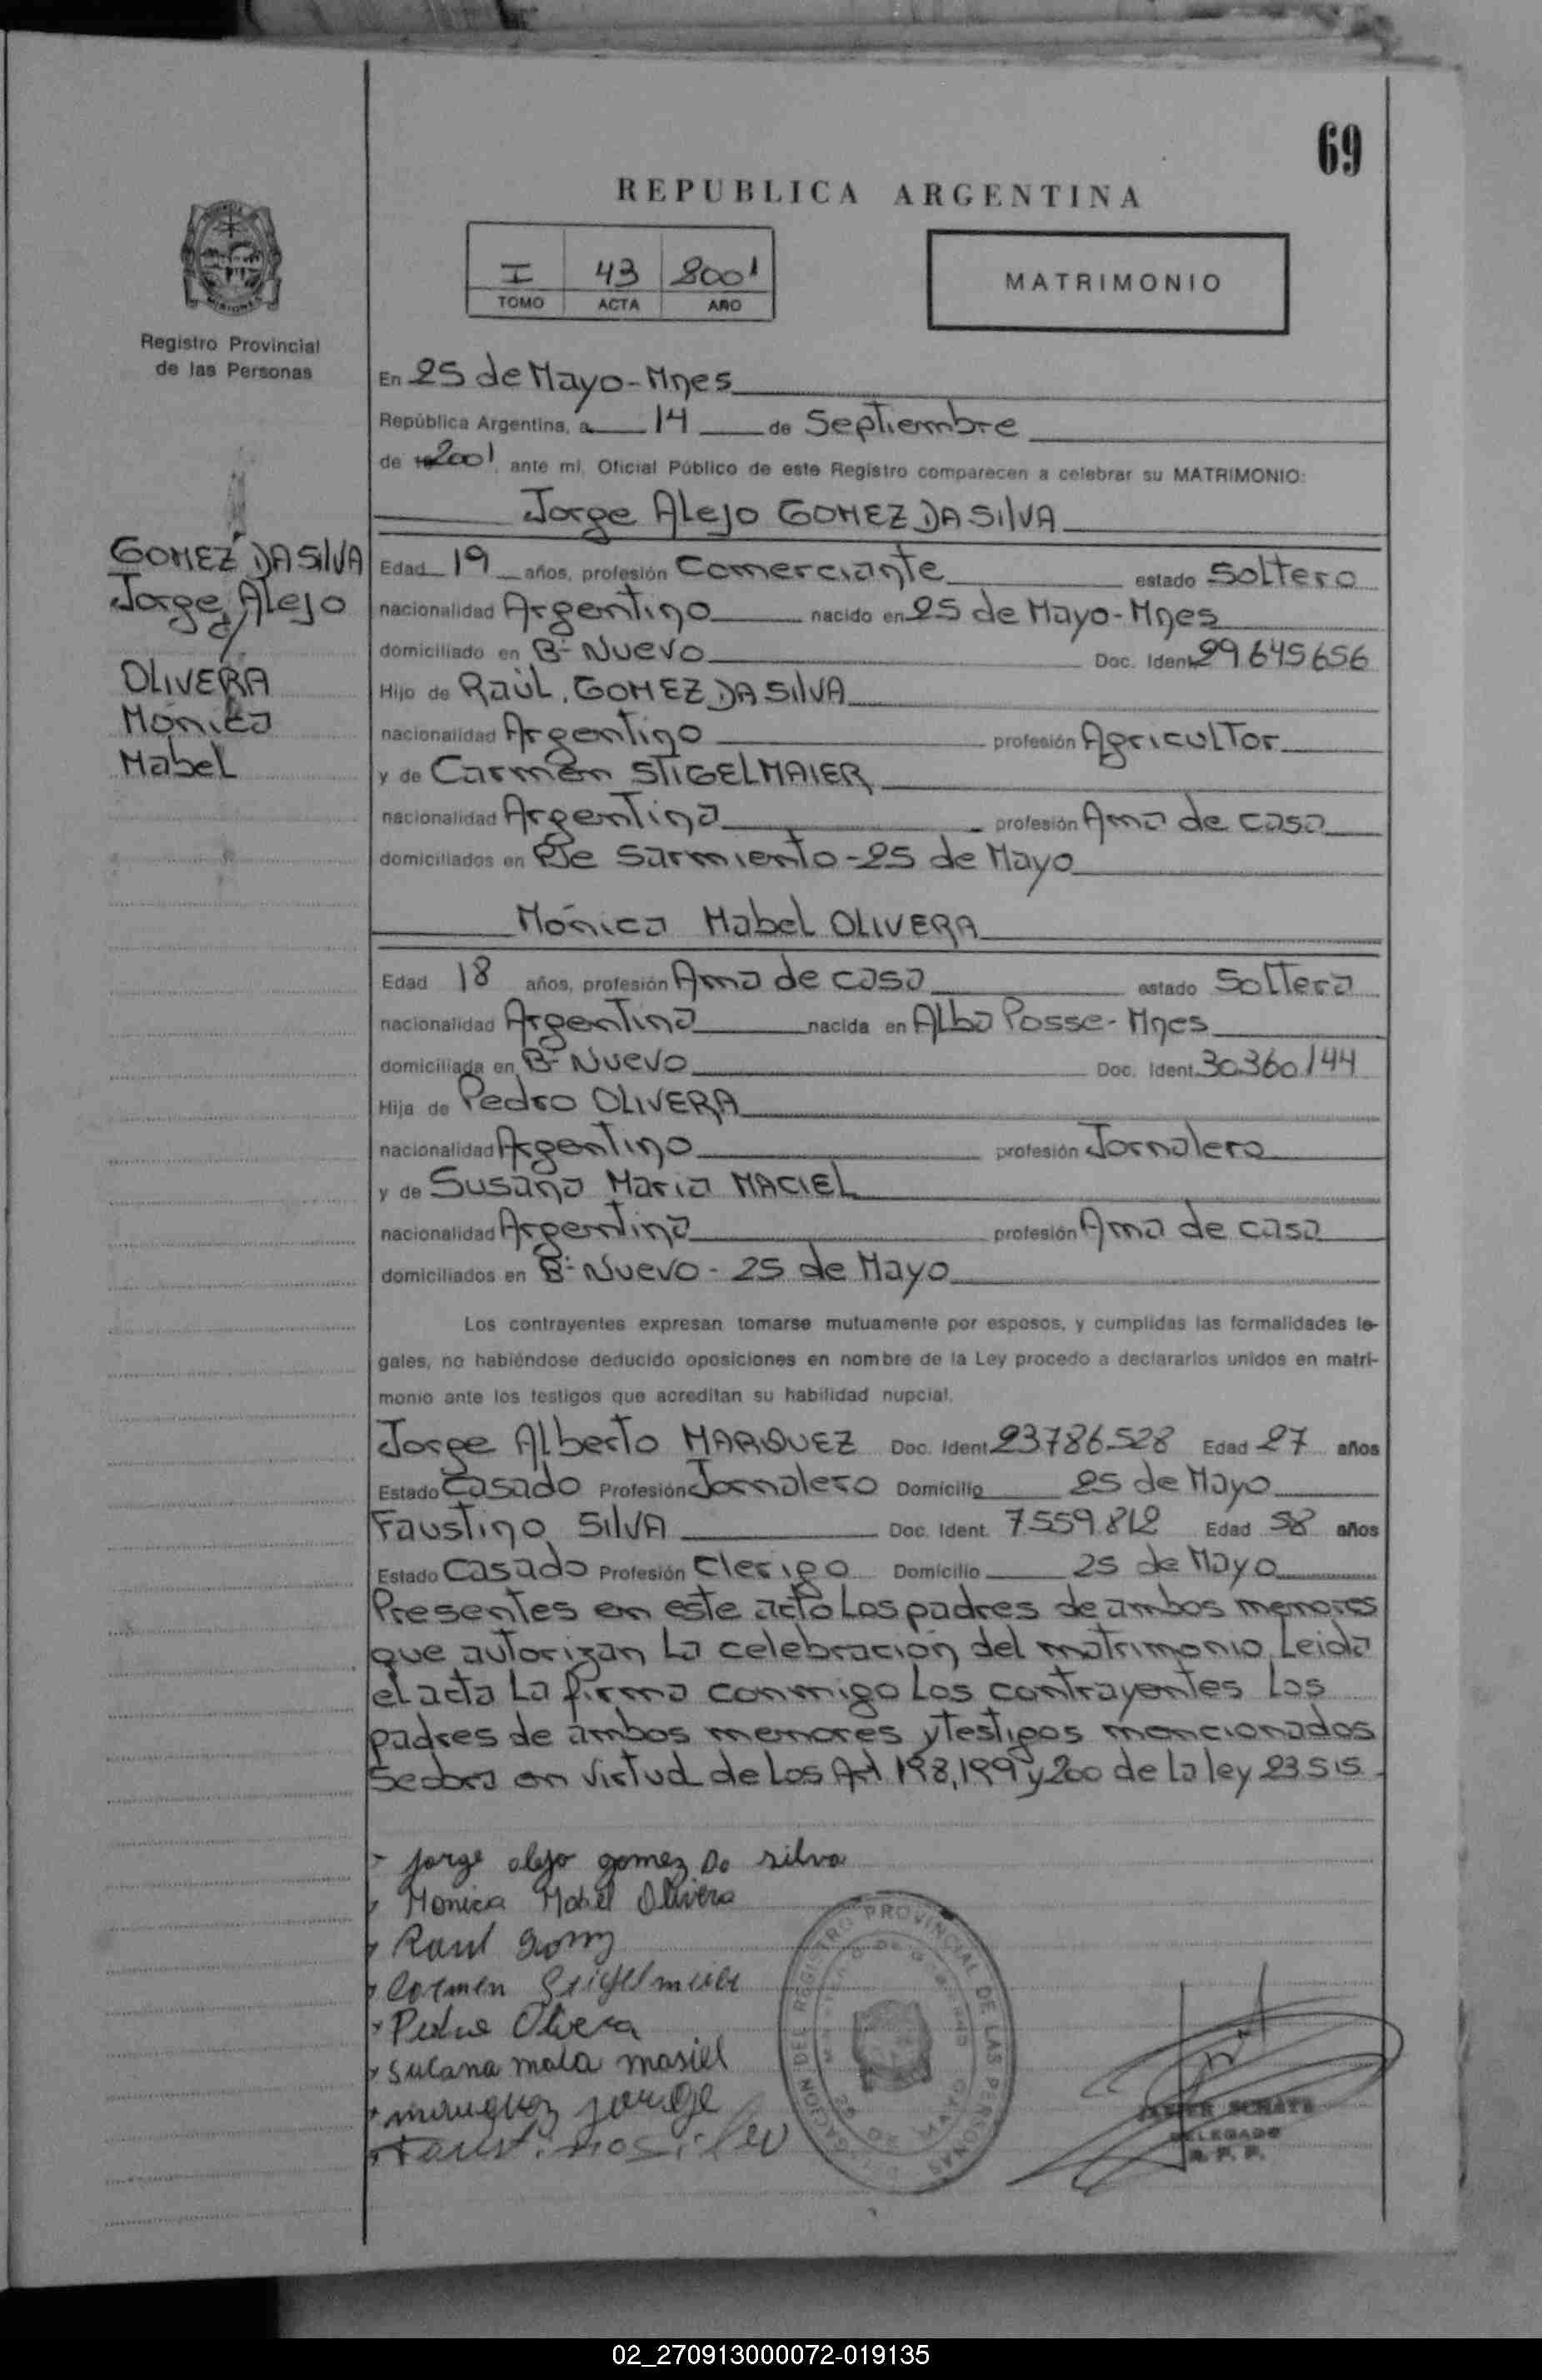 69
REPUBLICA ARGENTINA
I 43 2001
TOMO ACTA AÑO
MATRIMONIO
Registro Provincial
de las Personas
En 25 de Mayo-Mnes
República Argentina, a 14 de Septiembre
de 2001, ante mi, Oficial Público de este Registro comparecen a celebrar su MATRIMONIO:
Jorge Alejo GOMEZ DA SilVA
GOMEZ DA SilVA
Jorge Alejo
y
OLIVERA
Mónica
Mabel
Edad 19 años, profesión Comerciante estado Soltero
nacionalidad Argentino nacido en 25 de Mayo-Mnes
domiciliado en B- Nuevo Doc. Ident. 29.645656
Hijo de Raúl. GOMEZ DA SilVA
nacionalidad Argentino profesión Agricultor
y de Carmen STIGELMAIER
nacionalidad Argentina profesión Ama de casa
domiciliados en Pje Sarmiento-25 de Mayo
Mónica Mabel OLIVERA
Edad 18 años, profesión Ama de casa estado Soltera
nacionalidad Argentina nacida en Alba Posse-Mnes
domiciliada en B- Nuevo Doc. Ident. 30.360.144
Hija de Pedro OLIVERA
nacionalidad Argentino profesión Jornalero
y de Susana Maria MACIEL
nacionalidad Argentina profesión Ama de casa
domiciliados en B- Nuevo - 25 de Mayo
Los contrayentes expresan tomarse mutuamente por esposos, y cumplidas las formalidades le-
gales, no habiéndose deducido oposiciones en nombre de la Ley procedo a declararlos unidos en matri-
monio ante los testigos que acreditan su habilidad nupcial.
Jorge Alberto MARQUEZ Doc. Ident. 23.786.528 Edad 27 años
Estado Casado Profesión Jornalero Domicilio 25 de Mayo
Faustino SilVA Doc. Ident. 7.559.812 Edad 58 años
Estado Casado Profesión Clerigo Domicilio 25 de Mayo
Presentes en este acto Los padres de ambos menores
que autorizan La celebración del matrimonio. Leida
el acta La firma conmigo Los contrayentes Los
padres de ambos menores y testigos mencionados
Se obra en virtud de Los Art 198, 199 y 200 de La ley 23.515.
Jorge alejo gomez Da silva
Monica Mabel Olivera
Raul
Carmen
Pedro Olivera
Sucana maia masiel
marquez jorge
Faustino silva
DELEGACION DEL REGISTRO PROVINCIAL DE LAS PERSONAS
DELEGADO
R. P. P.
02_270913000072-019135